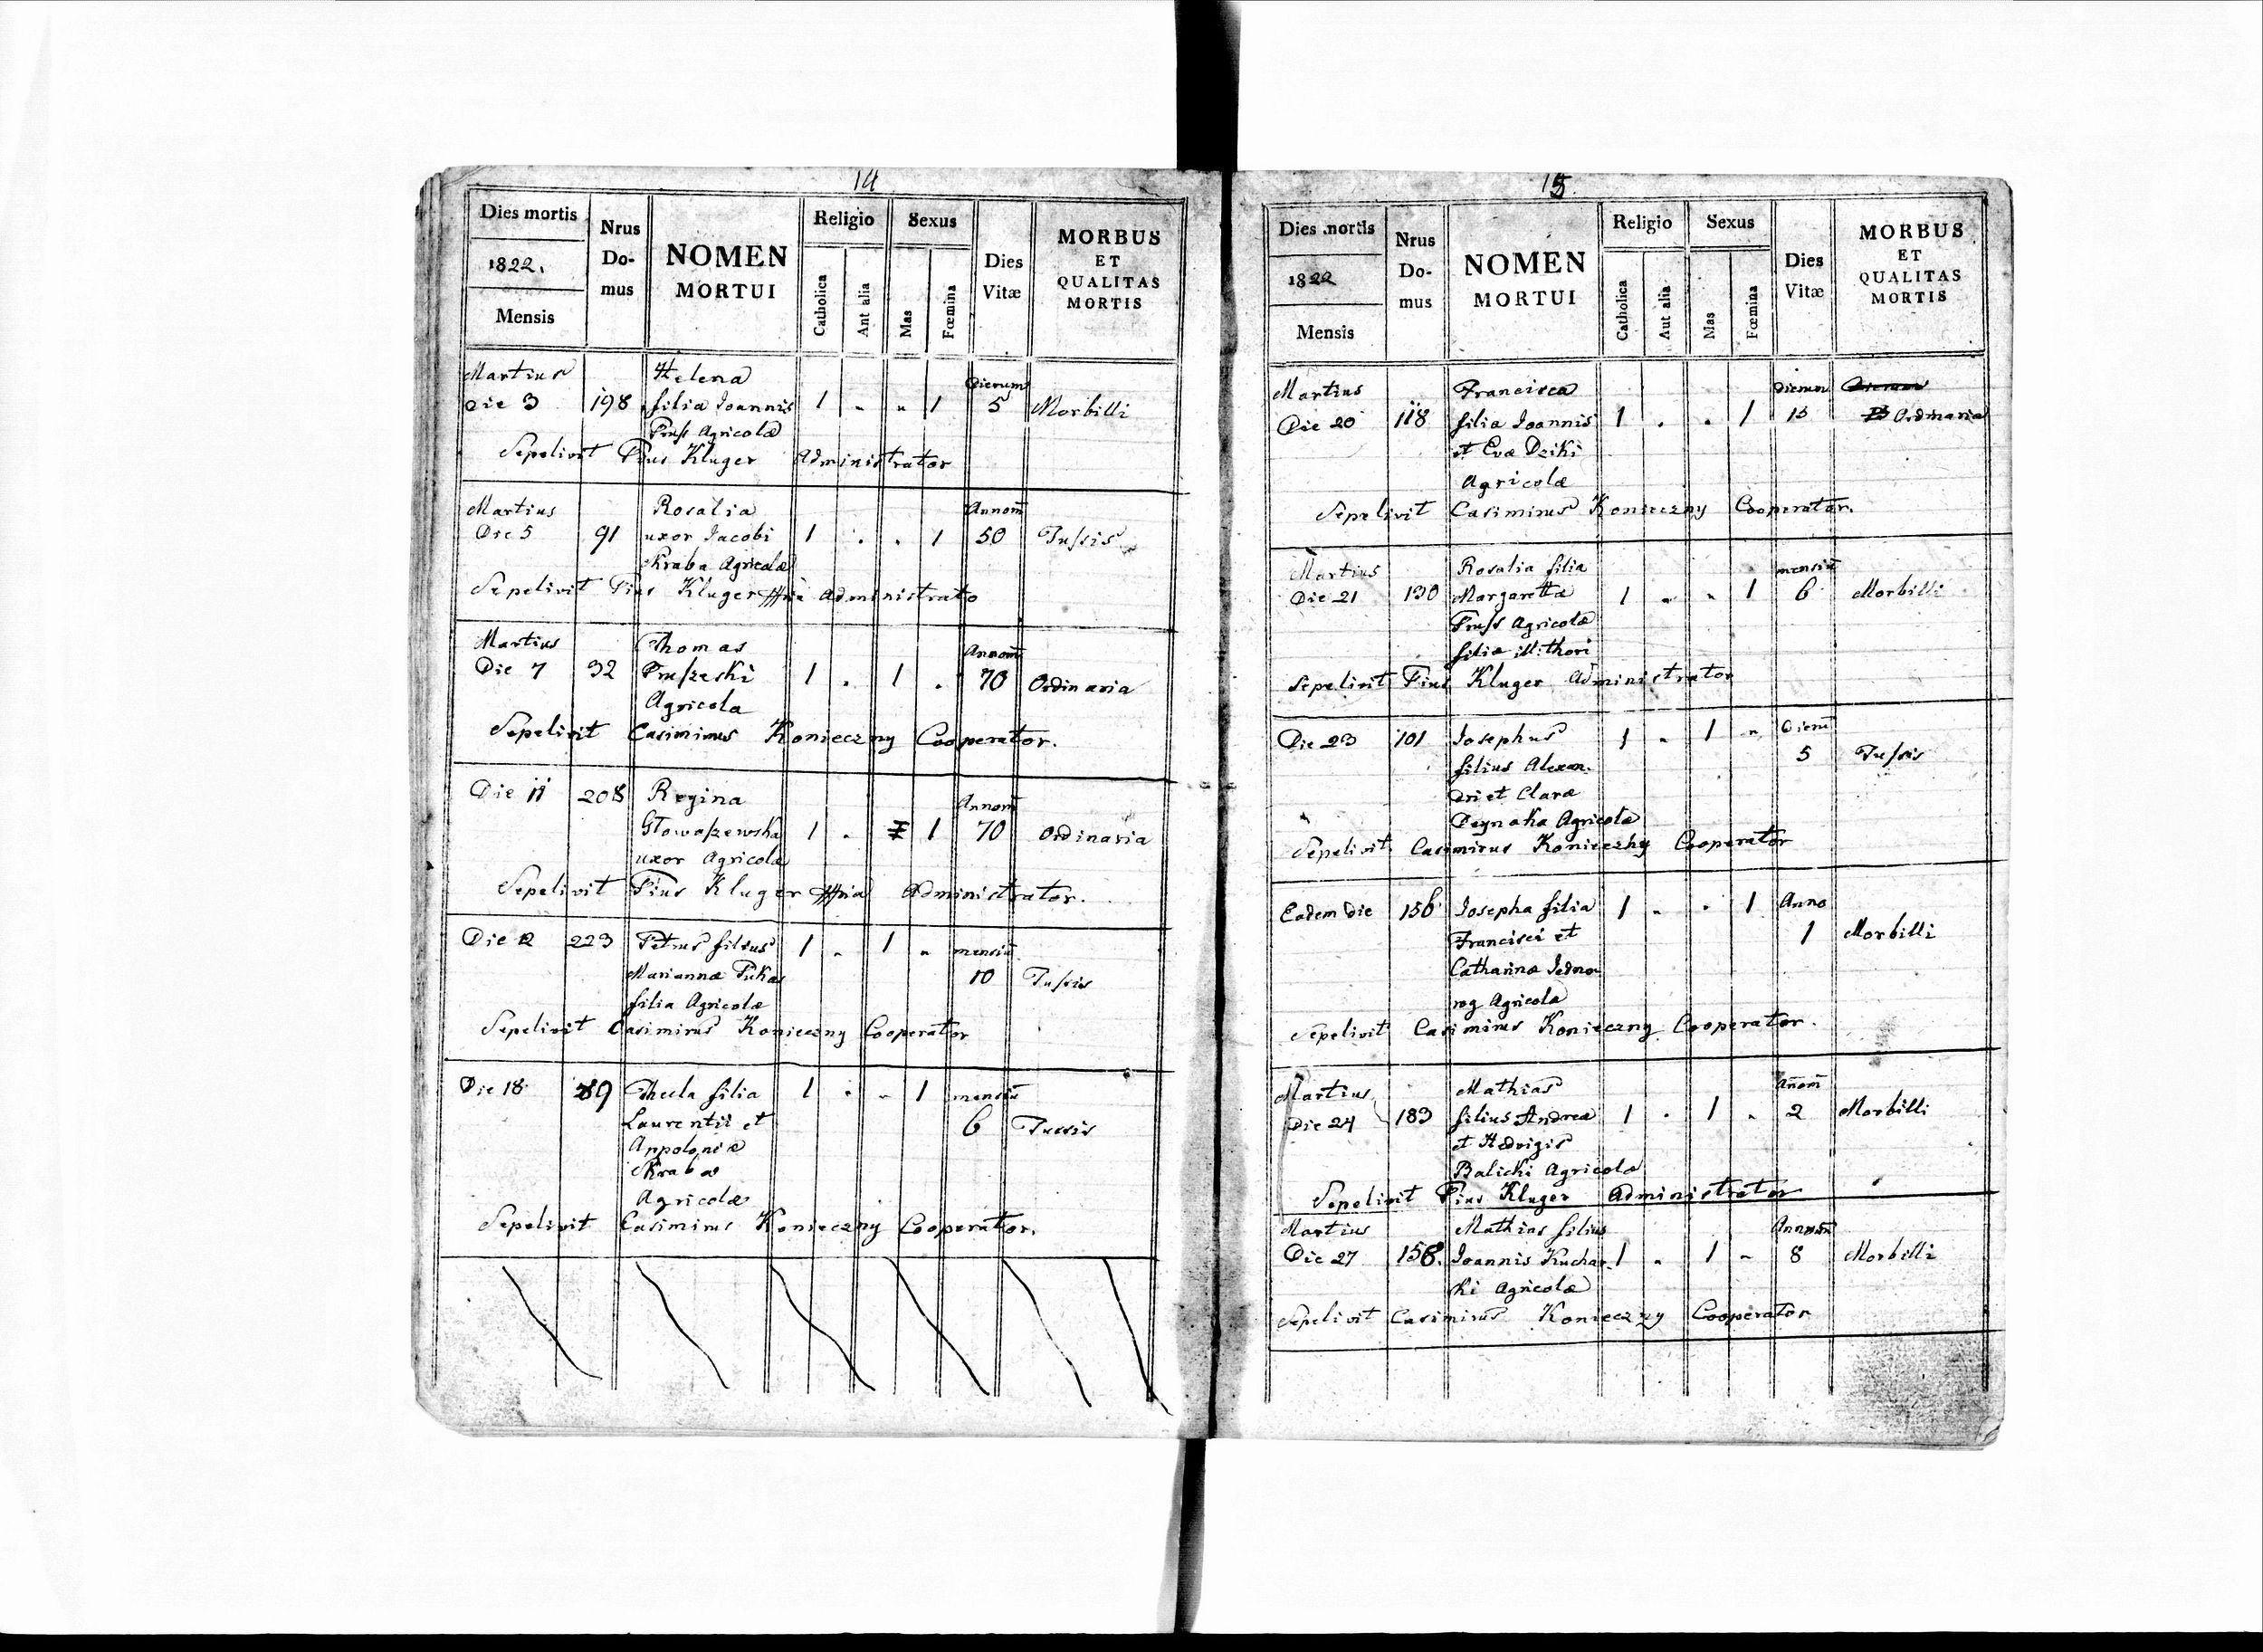 14
Dies mortis
1822.
Mensis
Nrus Do- mus
NOMEN MORTUI
Religio
Catholica
Aut alia
Sexus
Mas
Fœmina
Dies Vitæ
MORBUS ET QUALITAS MORTIS
Martius Helena Dierum
Die 3 198 filia Joannis 1 " " 1 5 Morbilli
Pruss Agricolæ
Sepelivit Pius Kluger Administrator
Martius Rosalia Annoru
Die 5 91 uxor Jacobi 1 . . 1 50 Tussis
Skraba Agricolæ
Sepelivit Pius Kluger Administrato
Martius Thomas Annoru
Die 7 32 Pruszeski 1 . 1 . 70 Ordinaria
Agricola
Sepelivit Casimirus Konieczny Cooperator.
Die 11 208 Regina Annoru
Głowaszewska 1 . 1 70 Ordinaria
uxor Agricolæ
Sepelivit Pius Kluger Administrator.
Die 12 223 Petrus filius 1 " 1 " mensiu
Mariannæ Pukas 10 Tussis
filia Agricolæ
Sepelivit Casimirus Konieczny Cooperator
Die 18 89 Thecla filia 1 . " 1 mensiu
Laurentii et 6 Tussis
Appoloniæ
Skraba
Agricolæ
Sepelivit Casimirus Konieczny Cooperator.
15
Dies mortis
1822
Mensis
Nrus Do- mus
NOMEN MORTUI
Religio
Catholica
Aut alia
Sexus
Mas
Fœmina
Dies Vitæ
MORBUS ET QUALITAS MORTIS
Martius Francisca Dierum
Die 20 118 filia Joannis 1 . . 1 15 Ordinaria
et Evæ Dziki
Agricolæ
Sepelivit Casimirus Konieczny Cooperator.
Martius Rosalia filia mensiu
Die 21 130 Margarettæ 1 " " 1 6 Morbilli
Pruss Agricolæ
filia illithori
Sepelivit Pius Kluger Administrator
Die 23 101 Josephus 1 " 1 " Dieru
filius Alexan- 5 Tussis
dri et Claræ
Deynaka Agricolæ
Sepelivit Casimirus Konieczny Cooperator
Eadem die 156 Josepha filia 1 " . 1 Anno
Francisci et 1 Morbilli
Catharinæ Jedno
rog Agricola
Sepelivit Casimirus Konieczny Cooperator.
Martius Mathias Anoru
Die 24 183 filius Andreæ 1 . 1 " 2 Morbilli
et Hedvigis
Balicki Agricolæ
Sepelivit Pius Kluger Administrator
Martius Mathias filius Annoru
Die 27 158. Joannis Kuchar- 1 " 1 " 8 Morbilli
ki Agricolæ
Sepelivit Casimirus Konieczny Cooperator